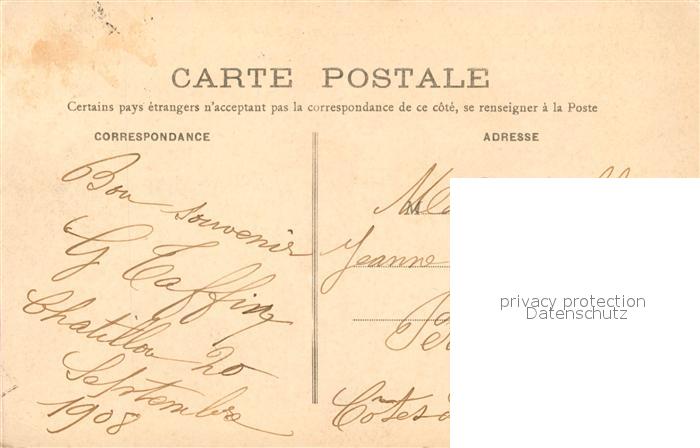 CARTE POSTALE
Certains pays étrangers n'acceptant pas la correspondance de ce côté, se renseigner à la Poste
CORRESPONDANCE
Bon souvenir
G Taffin
Chatillon 20
Septembre
1908
ADRESSE
M
Jeanne
Côtes
privacy protection
Datenschutz